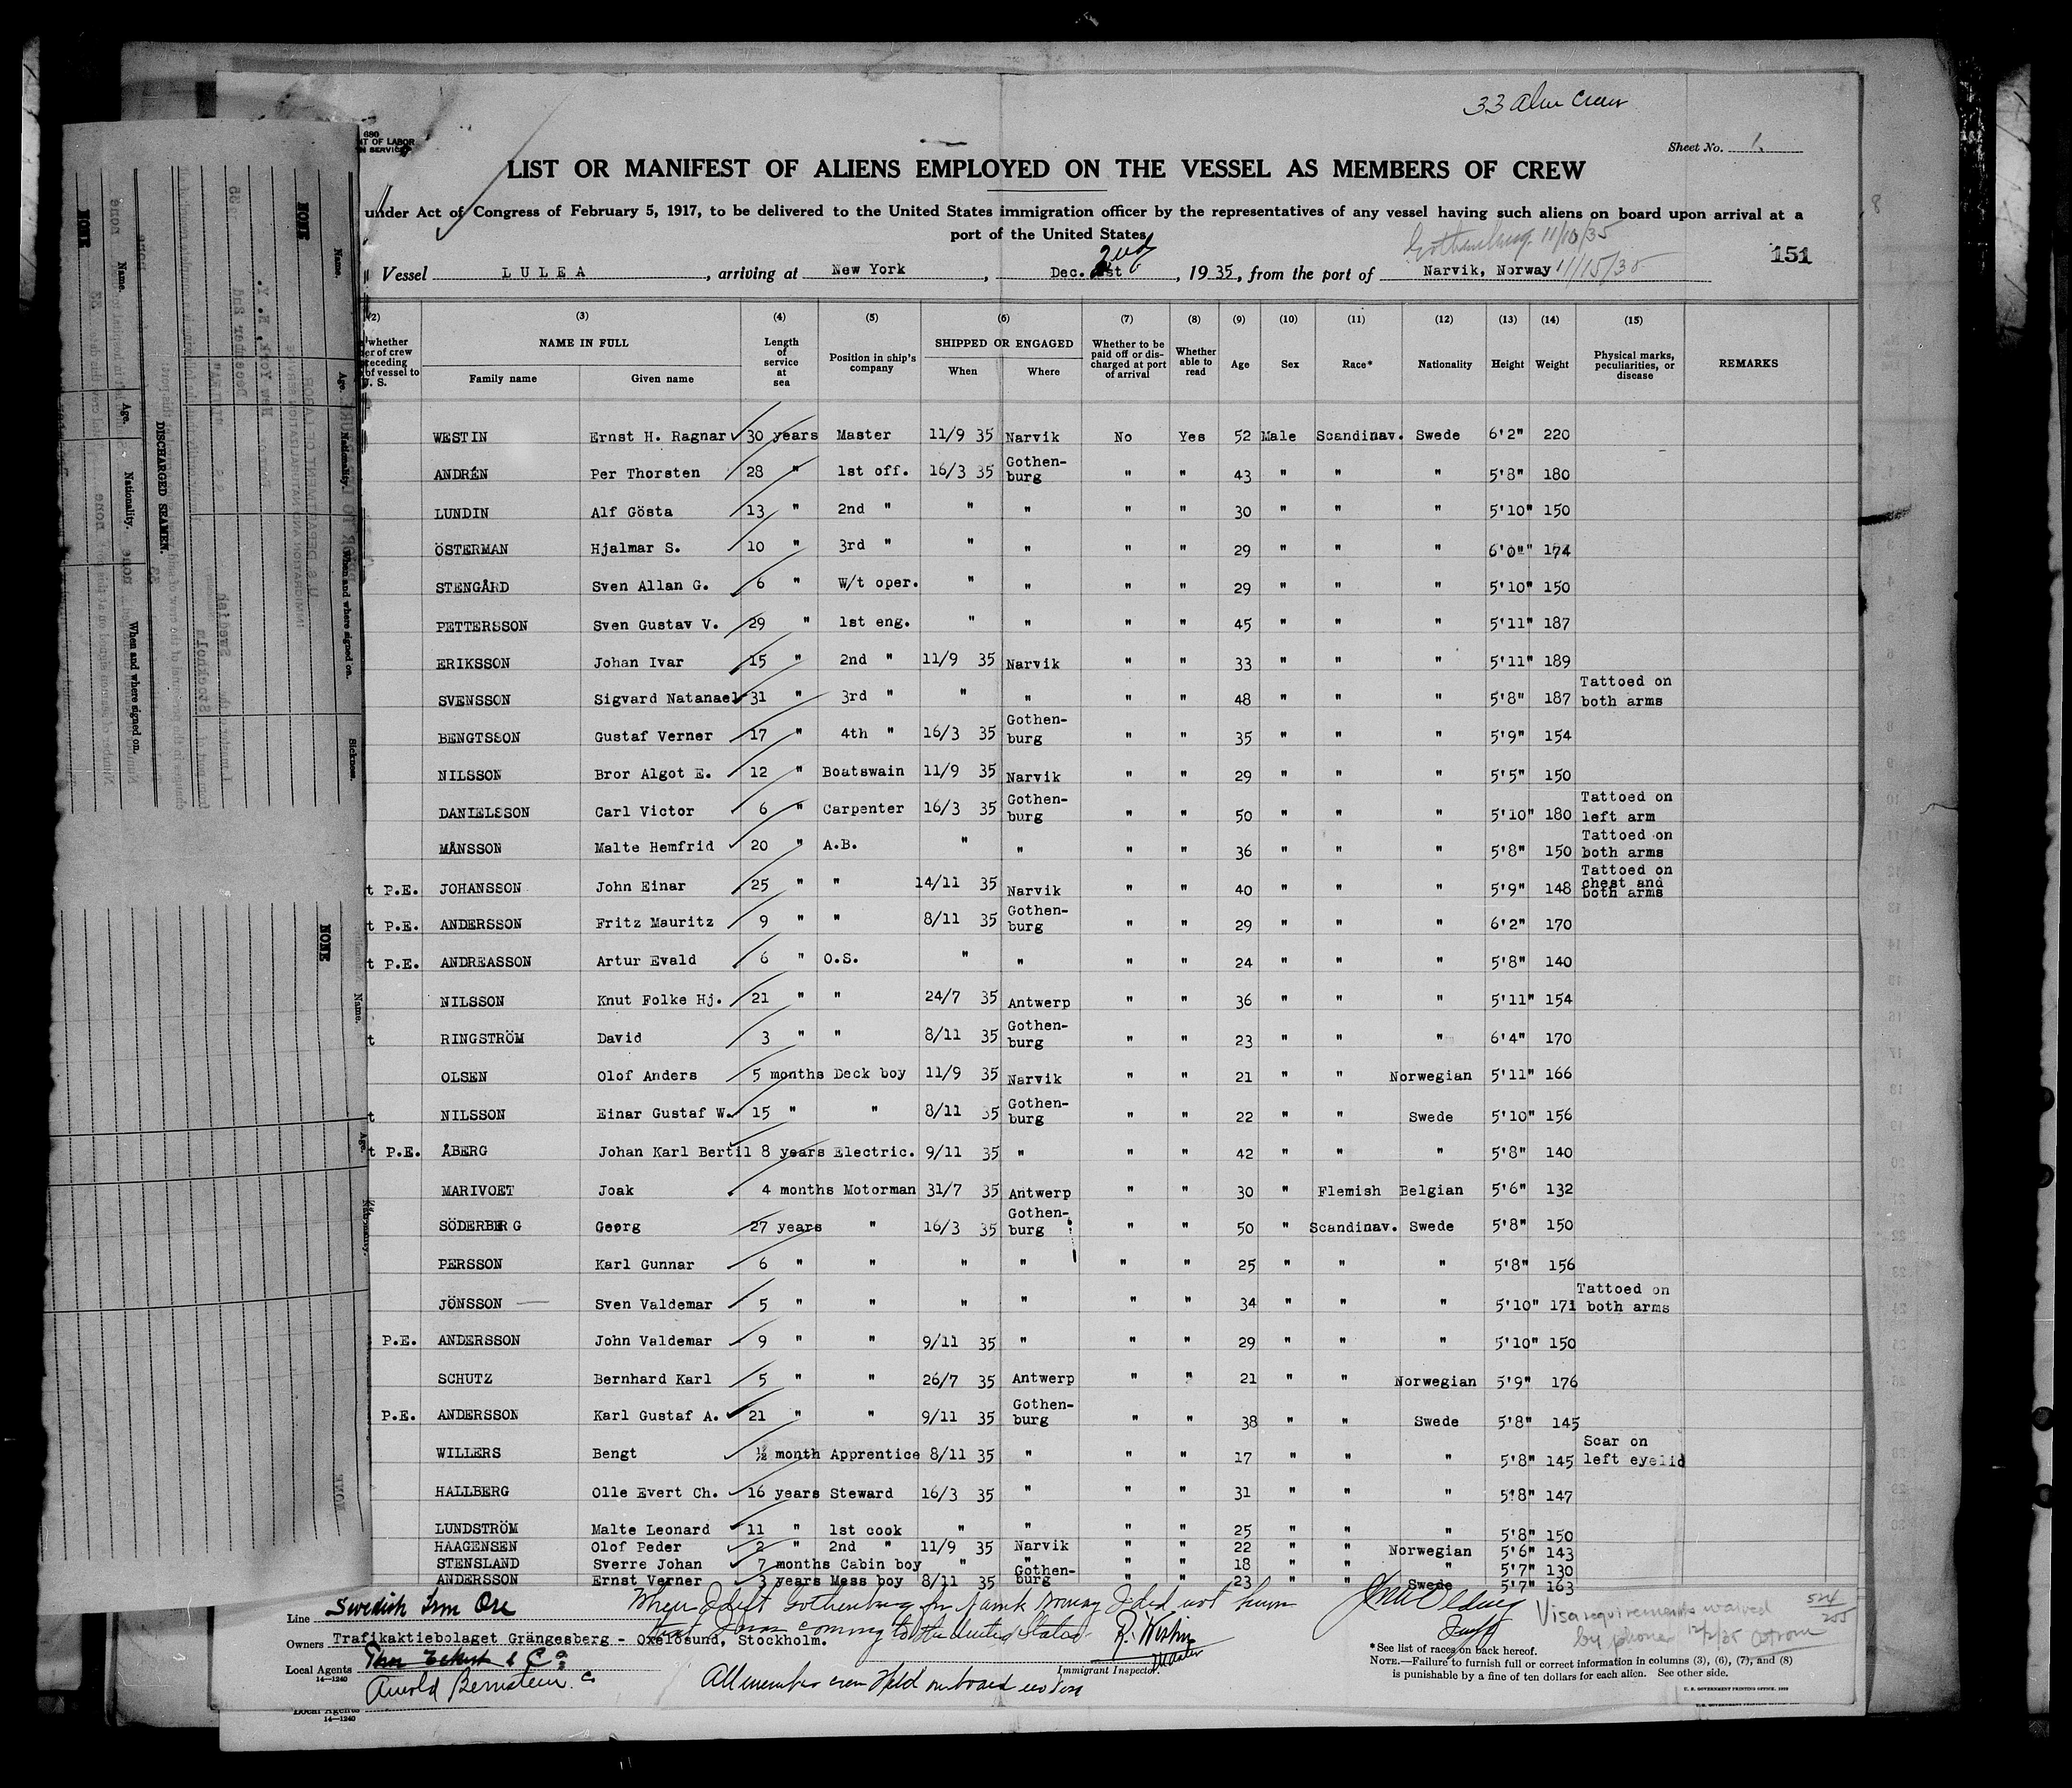 33 alien crew
680
NT OF LABOR
N SERVICE
Sheet No. 1.
LIST OR MANIFEST OF ALIENS EMPLOYED ON THE VESSEL AS MEMBERS OF CREW
under Act of Congress of February 5, 1917, to be delivered to the United States immigration officer by the representatives of any vessel having such aliens on board upon arrival at a
port of the United States
Gothenburg 11/10/35
151
Vessel LULEA, arriving at New York, Dec. 2nd, 1935, from the port of Narvik, Norway 11/15/35
(2) (3) (4) (5) (6) (7) (8) (9) (10) (11) (12) (13) (14) (15)
whether
er of crew
preceding
of vessel to
U. S.
NAME IN FULL
Family name Given name
Length of service at sea
Position in ship's company
SHIPPED OR ENGAGED
When Where
Whether to be paid off or discharged at port of arrival
Whether able to read
Age Sex Race* Nationality Height Weight
Physical marks, peculiarities, or disease
REMARKS
WESTIN Ernst H. Ragnar 30 years Master 11/9 35 Narvik No Yes 52 Male Scandinav. Swede 6'2" 220
ANDRÉN Per Thorsten 28 " 1st off. 16/3 35 Gothenburg " " 43 " " " 5'8" 180
LUNDIN Alf Gösta 13 " 2nd " " " " " 30 " " " 5'10" 150
ÖSTERMAN Hjalmar S. 10 " 3rd " " " " " 29 " " " 6'0" 174
STENGÅRD Sven Allan G. 6 " W/t oper. " " " " 29 " " " 5'10" 150
PETTERSSON Sven Gustav V. 29 " 1st eng. " " " " 45 " " " 5'11" 187
ERIKSSON Johan Ivar 15 " 2nd " 11/9 35 Narvik " " 33 " " " 5'11" 189
SVENSSON Sigvard Natanael 31 " 3rd " " " " " 48 " " " 5'8" 187 Tattoed on both arms
BENGTSSON Gustaf Verner 17 " 4th " 16/3 35 Gothenburg " " 35 " " " 5'9" 154
NILSSON Bror Algot E. 12 " Boatswain 11/9 35 Narvik " " 29 " " " 5'5" 150
DANIELSSON Carl Victor 6 " Carpenter 16/3 35 Gothenburg " " 50 " " " 5'10" 180 Tattoed on left arm
MÅNSSON Malte Hemfrid 20 " A.B. " " " " 36 " " " 5'8" 150 Tattoed on both arms
t P.E. JOHANSSON John Einar 25 " " 14/11 35 Narvik " " 40 " " " 5'9" 148 Tattoed on chest and both arms
t P.E. ANDERSSON Fritz Mauritz 9 " " 8/11 35 Gothenburg " " 29 " " " 6'2" 170
t P.E. ANDREASSON Artur Evald 6 " O.S. " " " " 24 " " " 5'8" 140
NILSSON Knut Folke Hj. 21 " " 24/7 35 Antwerp " " 36 " " " 5'11" 154
t RINGSTRÖM David 3 " " 8/11 35 Gothenburg " " 23 " " " 6'4" 170
OLSEN Olof Anders 5 months Deck boy 11/9 35 Narvik " " 21 " " Norwegian 5'11" 166
t NILSSON Einar Gustaf W. 15 " " 8/11 35 Gothenburg " " 22 " " Swede 5'10" 156
t P.E. ÅBERG Johan Karl Bertil 8 years Electric. 9/11 35 " " " 42 " " " 5'8" 140
MARIVOET Joak 4 months Motorman 31/7 35 Antwerp " " 30 " Flemish Belgian 5'6" 132
SÖDERBERG Georg 27 years " 16/3 35 Gothenburg " " 50 " Scandinav. Swede 5'8" 150
PERSSON Karl Gunnar 6 " " " " " " 25 " " " 5'8" 156
JÖNSSON Sven Valdemar 5 " " " " " " 34 " " " 5'10" 171 Tattoed on both arms
P.E. ANDERSSON John Valdemar 9 " " 9/11 35 " " " 29 " " " 5'10" 150
SCHUTZ Bernhard Karl 5 " " 26/7 35 Antwerp " " 21 " " Norwegian 5'9" 176
P.E. ANDERSSON Karl Gustaf A. 21 " " 9/11 35 Gothenburg " " 38 " " Swede 5'8" 145
WILLERS Bengt ½ month Apprentice 8/11 35 " " " 17 " " " 5'8" 145 Scar on left eyelid
HALLBERG Olle Evert Ch. 16 years Steward 16/3 35 " " " 31 " " " 5'8" 147
LUNDSTRÖM Malte Leonard 11 " 1st cook " " " " 25 " " " 5'8" 150
HAAGENSEN Olof Peder 2 " 2nd " 11/9 35 Narvik " " 22 " " Norwegian 5'6" 143
STENSLAND Sverre Johan 7 months Cabin boy " " " " 18 " " " 5'7" 130
ANDERSSON Ernst Verner 3 years Mess boy 8/11 35 Gothenburg " " 23 " " Swede 5'7" 163
Line Swedish Iron Ore
When I left Gothenburg for Narvik Norway I did not know
that I was coming to the United States
Visa requirements waived
by phone 12/2/35
Owners Trafikaktiebolaget Grängesberg - Oxelösund, Stockholm.
Master
Local Agents
14—1240
Arnold Bernstein
Immigrant Inspector.
All member crew Held on board
*See list of races on back hereof.
NOTE.—Failure to furnish full or correct information in columns (3), (6), (7), and (8)
is punishable by a fine of ten dollars for each alien. See other side.
U. S. GOVERNMENT PRINTING OFFICE
Local Agents
14—1240
NONE
DISCHARGED SEAMEN.
Name. Age. Nationality. When and where signed on. Sickness.